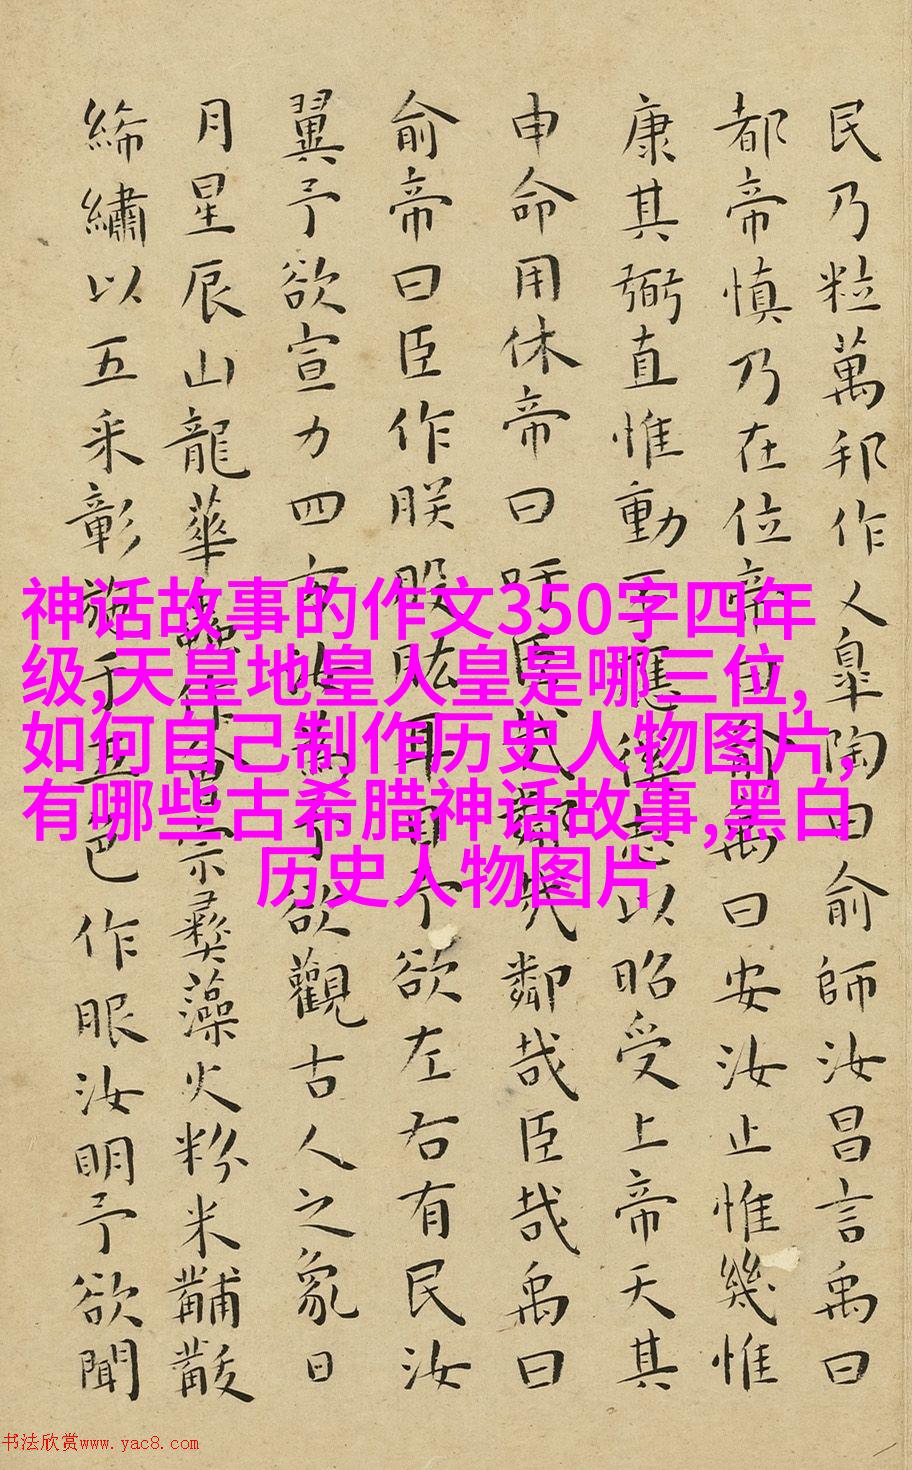 民乃粒萬邦作乂皐陶曰俞師汝昌言禹曰
都帝慎乃在位帝曰俞禹曰安汝止惟幾惟
康其弼直惟動丕應徯志以昭受上帝天其
申命用休帝曰吁臣哉鄰哉鄰哉臣哉禹曰
俞帝曰臣作朕股肱耳目予欲左右有民汝
翼予欲宣力四方汝為予欲觀古人之象日
月星辰山龍華蟲作會宗彝藻火粉米黼黻
絺繡以五采彰施于五色作服汝明予欲聞
神话故事的作文350字四年
级,天皇地皇人皇是哪三位,
如何自己制作历史人物图片,
有哪些古希腊神话故事,黑白
历史人物图片
书法欣赏www.yac8.com